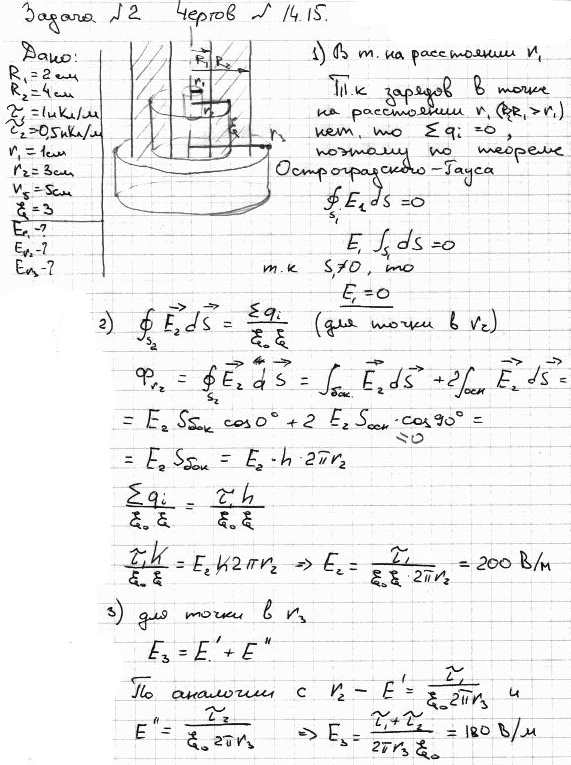 Задача №2 Чертов № 14.15.
Дано:
R₁ = 2 см
R₂ = 4 см
τ₁ = 1 нКл/м
τ₂ = 0,5 нКл/м
r₁ = 1 см
r₂ = 3 см
r₃ = 5 см
ξ = 3
E_r₁ - ?
E_r₂ - ?
E_r₃ - ?
R₁ R₂
r₁
r₂
ξ
r₃
1) В т. на расстоянии r₁
Т.к зарядов в точке
на расстоянии r₁ (R₁ > r₁)
нет, то Σqᵢ = 0,
поэтому по теореме
Остроградского-Гауса
∮_S₁ E₁ dS = 0
E₁ ∫_S₁ dS = 0
т.к S₁ ≠ 0, то
E₁ = 0
2) ∮_S₂ E₂→ dS→ = Σqᵢ / ξ₀ ξ (для точки в r₂)
Φ_r₂ = ∮_S₂ E₂→ dS→ = ∫_бок. E₂→ dS→ + 2∫_осн E₂→ dS→ =
= E₂ S_бок cos0° + 2 E₂ S_осн · cos90° =
=0
= E₂ S_бок = E₂ · h · 2πr₂
Σqᵢ / ξ₀ ξ = τ₁h / ξ₀ ξ
τ₁h / ξ₀ ξ = E₂ h 2πr₂ ⇒ E₂ = τ₁ / ξ₀ ξ · 2πr₂ = 200 В/м
3) для точки в r₃
E₃ = E' + E''
По аналогии с r₂ - E' = τ₁ / ξ₀ 2πr₃ и
E'' = τ₂ / ξ₀ 2πr₃ ⇒ E₃ = τ₁ + τ₂ / 2πr₃ ξ₀ = 180 В/м